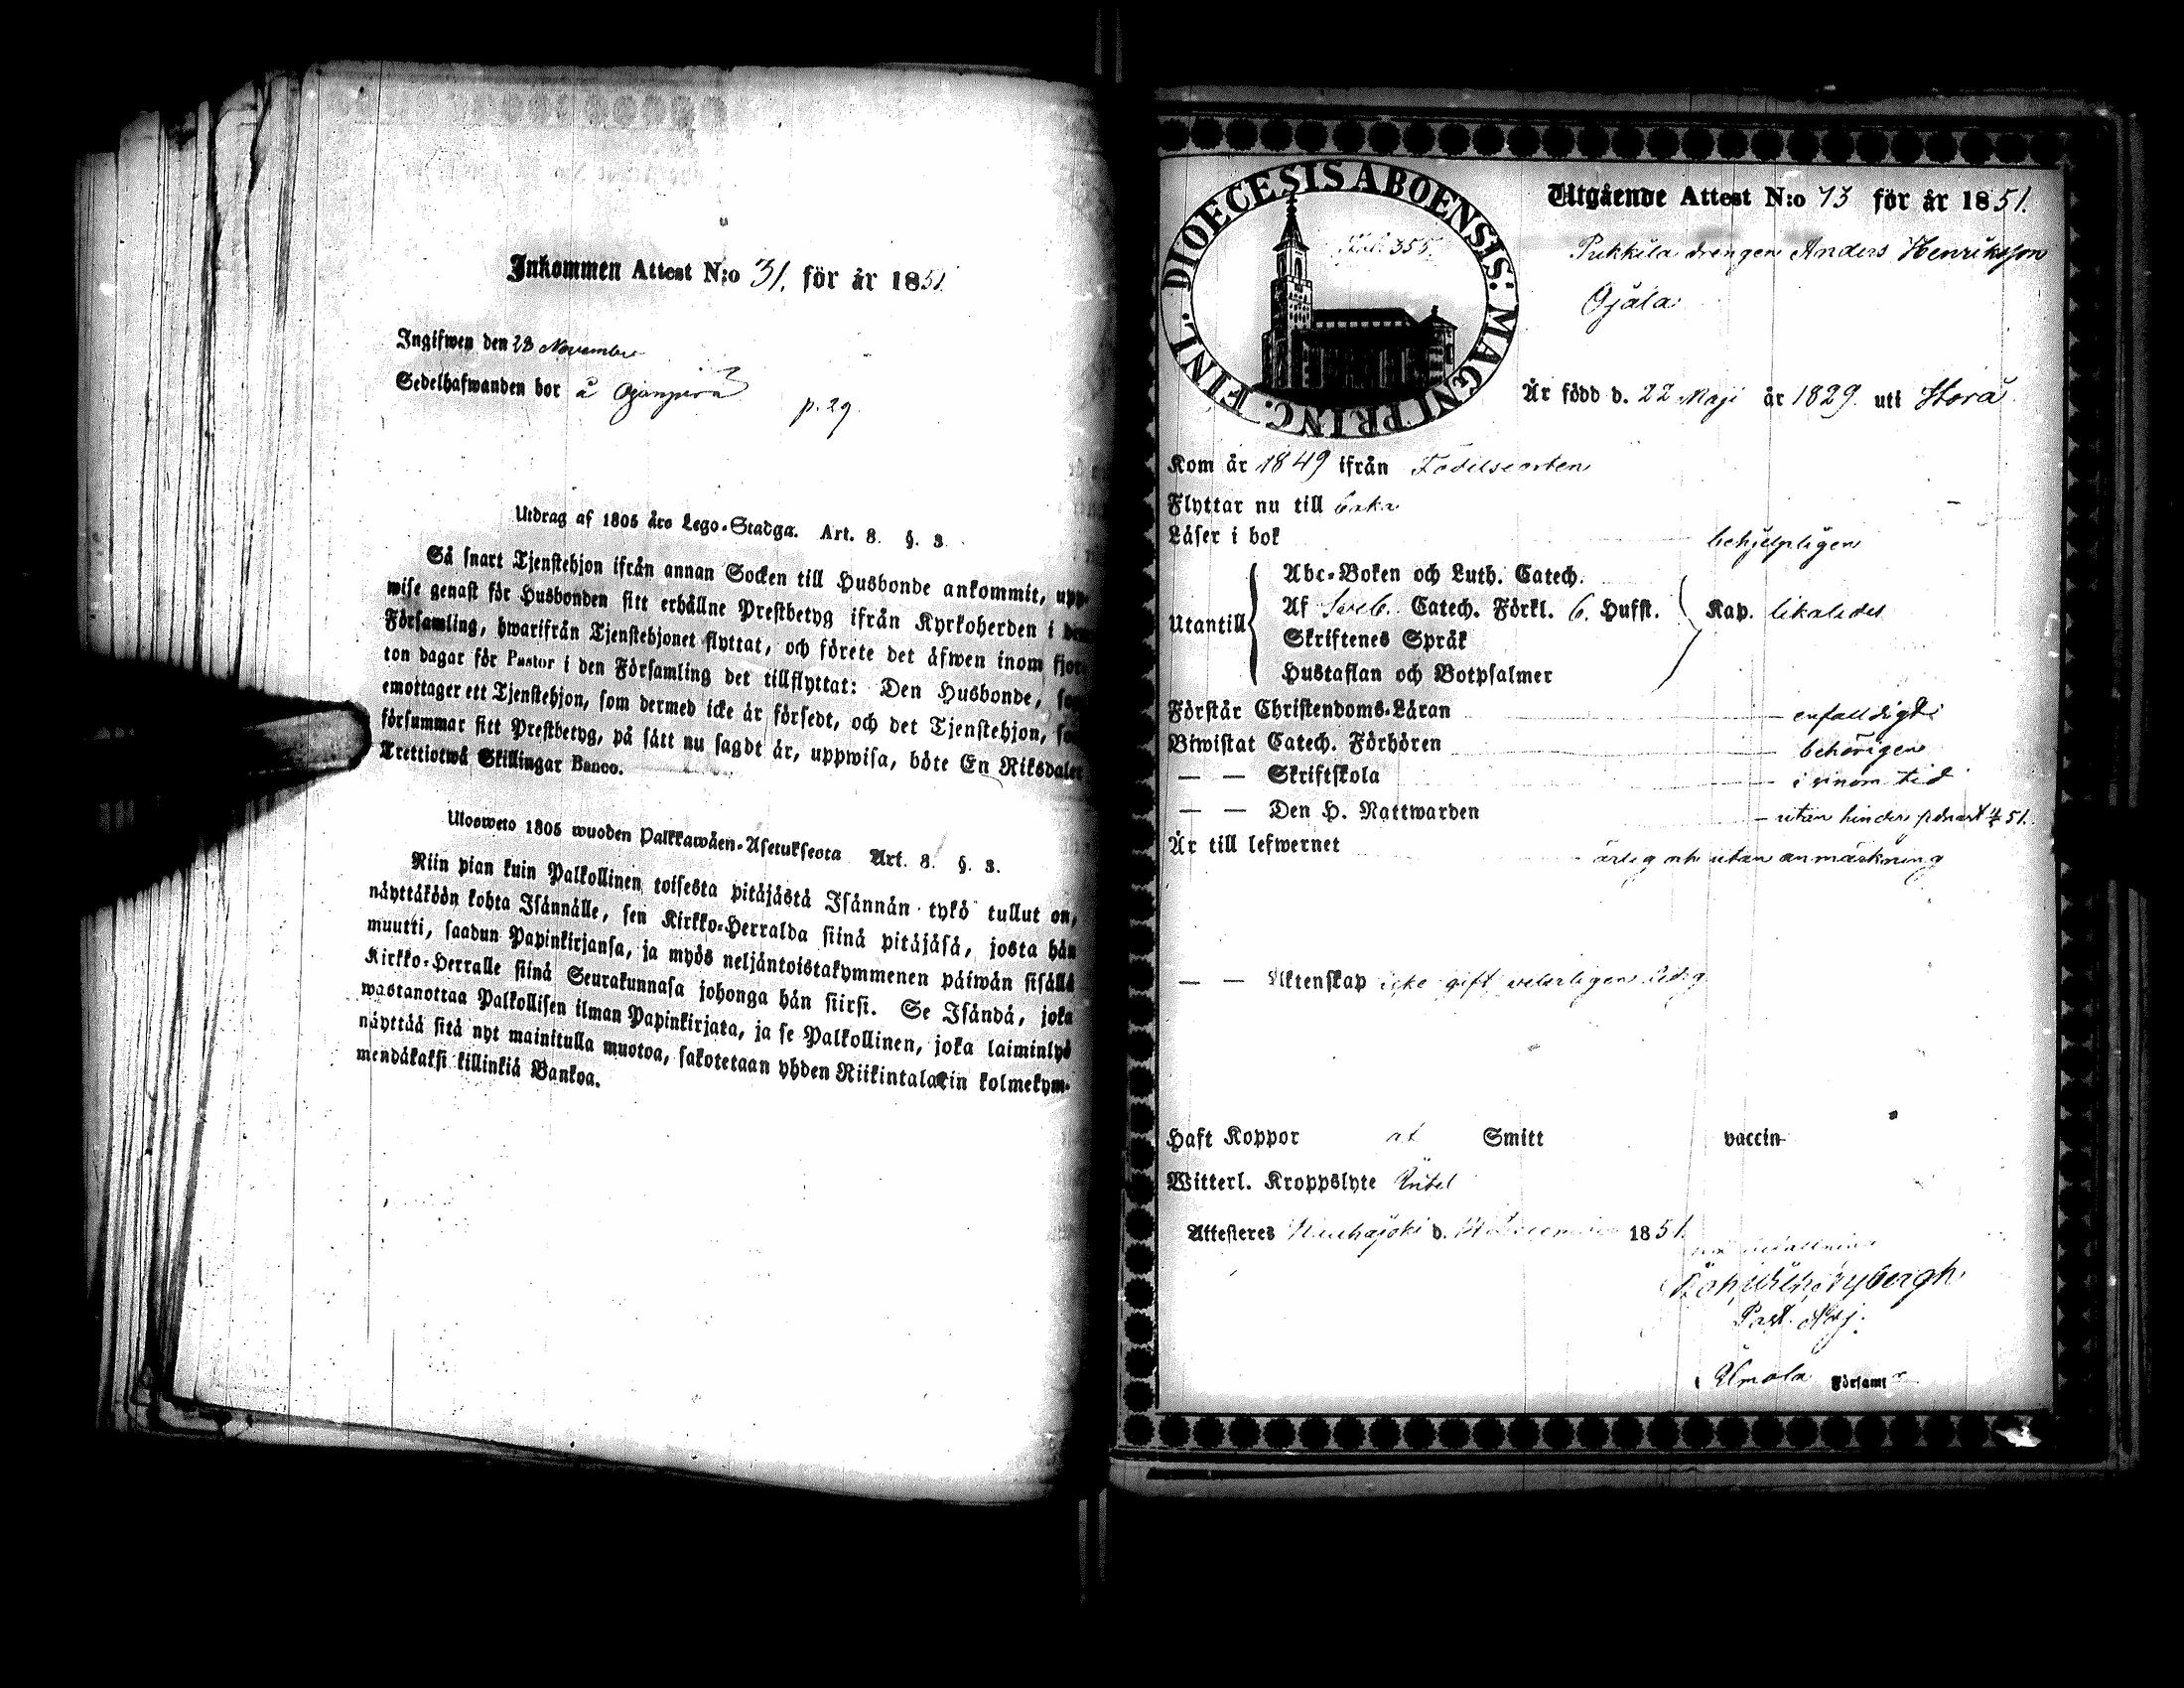 Inkommen Attest N:o 31. för år 1851
Ingifwen den 23 November
Sedelhafwanden bor å Ojanperä
p. 29.
Utdrag af 1805 års Lego-Stadga. Art. 8. §. 3.
Så snart Tjenstehjon ifrån annan Socken till Husbonde ankommit, upp-
wise genast för Husbonden sitt erhållne Prestbetyg ifrån Kyrkoherden i den
Församling, hwarifrån Tjenstehjonet flyttat, och förete det äfwen inom fjor-
ton dagar för Pastor i den Församling det tillflyttat: Den Husbonde, som
emottager ett Tjenstehjon, som dermed icke är försedt, och det Tjenstehjon, som
försummar sitt Prestbetyg, på sätt nu sagdt är, uppwisa, böte En Riksdaler
Trettiotwå Skillingar Banco.
Uloswето 1805 wuoden Palkkawäen-Asetuksesta Art. 8. §. 3.
Niin pian kuin Palkollinen toisesta pitäjästä Isännän tykö tullut on,
näyttäköön kohta Isännälle, sen Kirkko-Herralda siinä pitäjäsä, josta hän
muutti, saadun Papinkirjansa, ja myös neljäntoistakymmenen päiwän sisällä
Kirkko-Herralle siinä Seurakunnasa johonga hän siirsi. Se Isändä, joka
wastanottaa Palkollisen ilman Papinkirjata, ja se Palkollinen, joka laiminlyö
näyttää sitä nyt mainitulla muotoa, sakotetaan yhden Riikintalarin kolmekym-
mendäkaksi killinkiä Bankoa.
DIOECESIS ABOENSIS: MAGNI PRINC. FINL.
355.
Utgående Attest N:o 73 för år 1851.
Pukkila drengen Anders Henriksson
Ojala
Är född d. 22 Maji år 1829 uti Storå
Kom år 1849 ifrån Födelseorten
Flyttar nu till baka
Läser i bok behjelpligen
Abc-Boken och Luth. Catech.
Utantill Af Sveb. Catech. Förkl. 6. Hufst. Kap. likaledes
Skriftenes Språk
Hustaflan och Botpsalmer
Förstår Christendoms-Läran enfaldigt
Biwistat Catech. Förhören behörigen
— — Skriftskola i sinom tid
— — Den H. Nattwarden utan hinder 51.
Är till lefwernet ärlig och utan anmärkning
— — Äktenskap icke gift veterligen ledig
Haft Koppor at Smitt vaccin
Witterl. Kroppslyte
Attesteres d. 1851.
Past. Adj.
Ilmola Församl